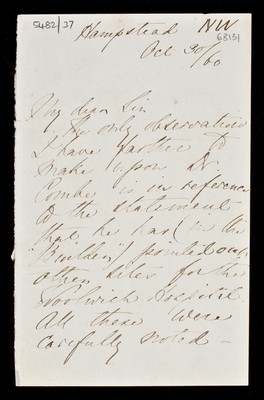 5482/37
Hampstead NW
68151
Oct 30/60
My dear Sir
The only observation
I have further to
make upon Dr.
Combe is in reference
to the statement
that he has (in the
"Builder") pointed out
other sites for the
Woolwich Hospital.
All these were
carefully noted -